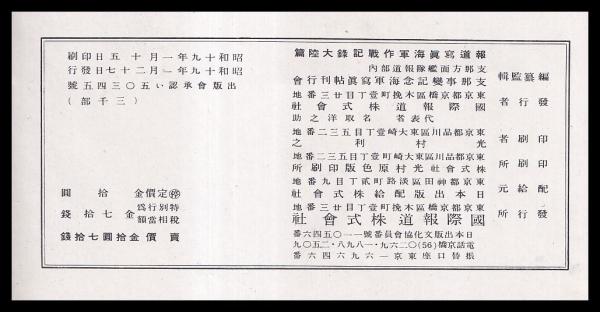 報道寫眞海軍作戰記錄大陸篇
編纂監輯 支那方面艦隊報道部內
支那事變記念海軍寫眞帖刊行會
發行者 東京都京橋區木挽町壹丁目廿三番地
國際報道株式會社
代表者 名取洋之助
印刷者 東京都品川區東大崎町壹丁目二三五番地
光村利之
印刷所 東京都品川區東大崎町壹丁目二三五番地
株式會社光村原色版印刷所
配給元 東京都神田區淡路町貳丁目九番地
日本出版配給株式會社
發行所 東京都京橋區木挽町壹丁目廿三番地
國際報道株式會社
日本出版文化協會員番號一一五〇四六番
電話京橋(56)〇二六九・一八九八・二五〇九
振替口座東京一六九六四六番
昭和十九年一月十五日印刷
昭和十九年一月二十七日發行
出版會承認い五〇三四五號
(三千部)
定價金拾圓
特別行爲
稅相當額 金七拾錢
賣價金拾圓七拾錢